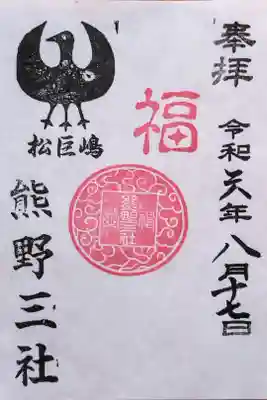 奉拝
令和元年八月十七日
福
松巨嶋
熊野三社